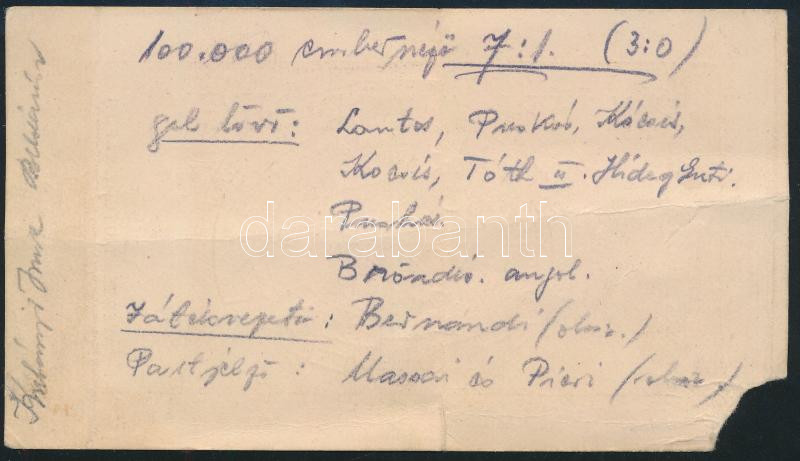 100.000 ember néző 7:1. (3:0)
gól lövő: Lantos, Puskás, Kócsis,
Kocsis, Tóth II. Hidegkuti.
Puskás
Bróadis. angol.
Játékvezető: Bernandi (olasz.)
Partjelző: Massai és Pieri (olasz.)
Imre
darabanth